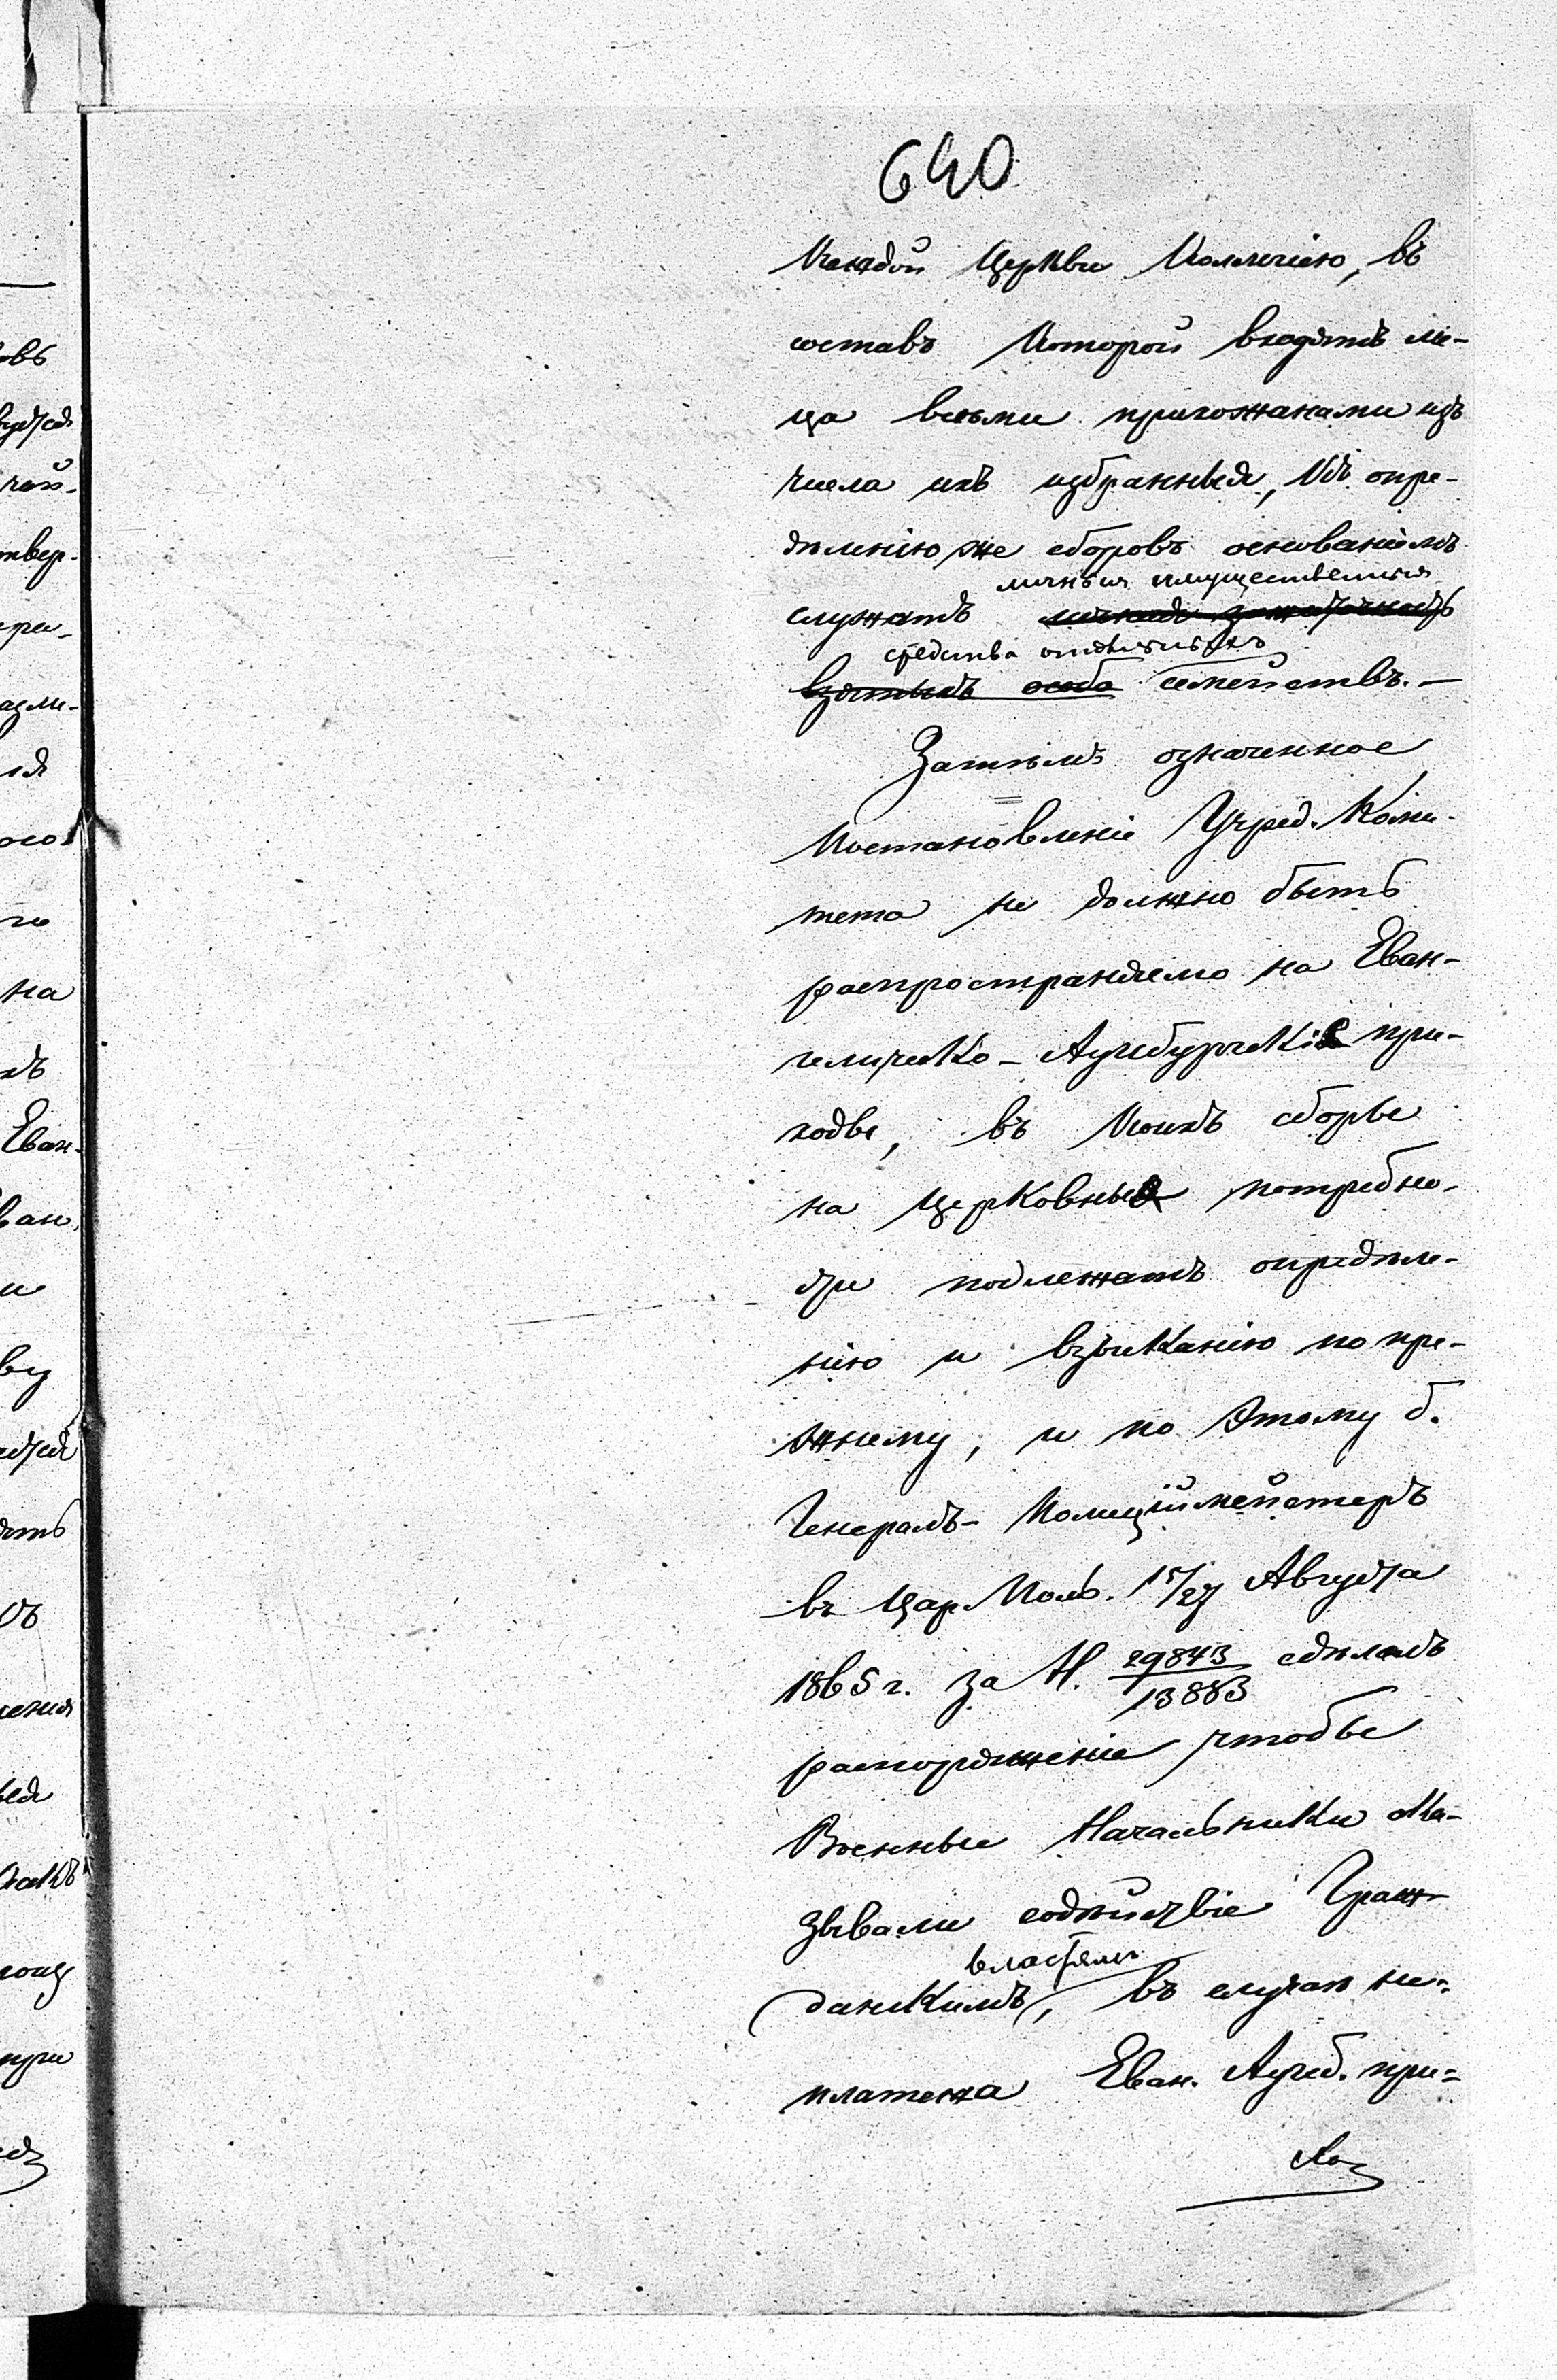 640
каждой Церкви Коллегіею, въ
составъ которой входятъ ли-
ца всѣми прихожанами изъ
числа ихъ избранныя, къ опре-
дѣленію же сборовъ основаніемъ
личныя имущественныя
служатъ личная зажиточность
средства отдѣльныхъ
взятыхъ особо семействъ.—
Затѣмъ означенное
Постановленіе Учред. Коми-
тета не должно быть
распространяемо на Еван-
гелическо-Аугсбургскіе при-
ходы, въ коихъ сборы
на церковныя потребно-
сти подлежатъ опредѣле-
нію и взысканію по пре-
жнему, и по этому б.
Генералъ-Полиціймейстеръ
въ Цар. Поль. 15/27 Августа
1865 г. за Н. 29843/13883 сдѣлалъ
распоряженіе чтобы
Военные Начальники ока-
зывали содѣйствіе Граж-
властямъ
данскимъ, въ случаѣ не-
платежа Еван. Аугсб. при-
хо